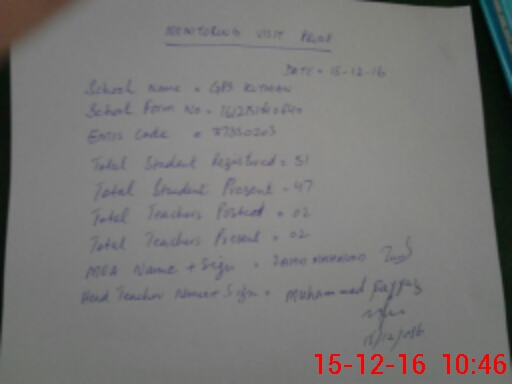 MONITORING VISIT PROOF
DATE = 15-12-16
School Name = GPS
School Form No =
EMIS Code =
Total Student Registered = 51
Total Student Present - 47
Total Teachers Posted = 02
Total Teachers Present = 02
MEA Name + Sign =
Head Teacher Name + Sign = Muhammad
15/12/2016
15-12-16 10:46